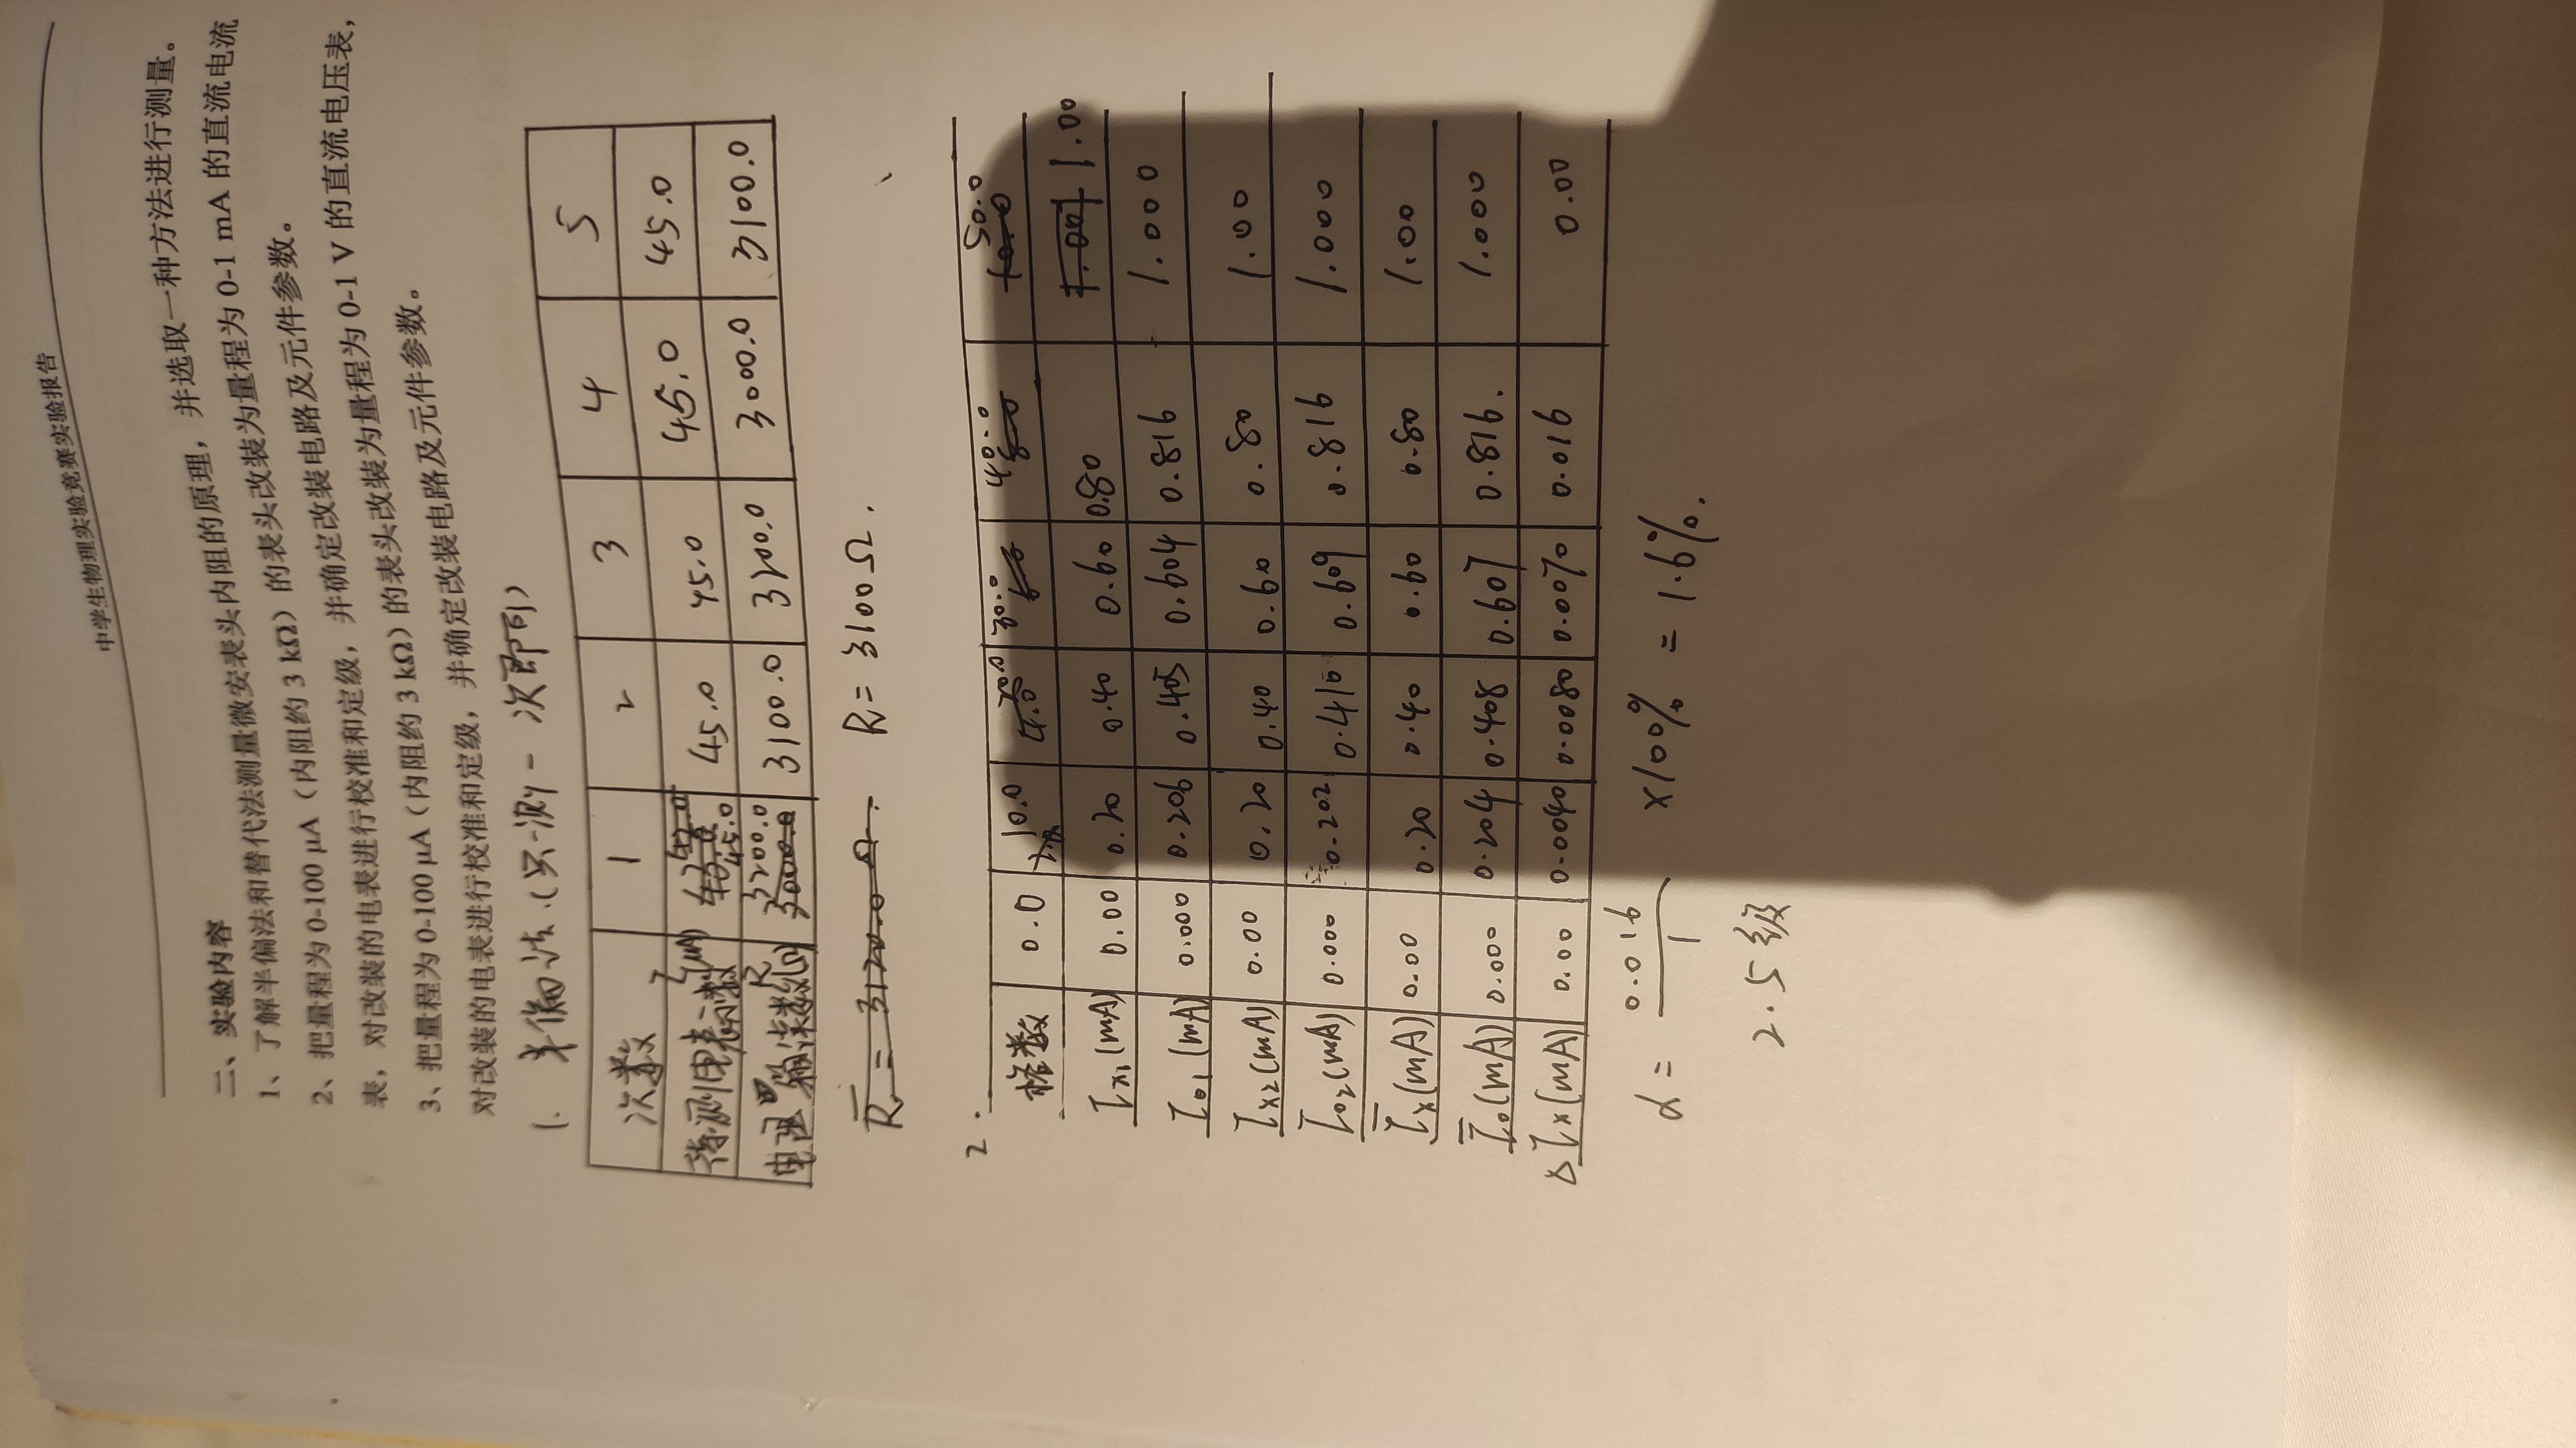 中学生物理实验竞赛实验报告
二、实验内容
1、了解半偏法和替代法测量微安表头内阻的原理，并选取一种方法进行测量。
2、把量程为 0-100 μA（内阻约 3 kΩ）的表头改装为量程为 0-1 mA 的直流电流
表，对改装的电表进行校准和定级，并确定改装电路及元件参数。
3、把量程为 0-100 μA（内阻约 3 kΩ）的表头改装为量程为 0-1 V 的直流电压表，
对改装的电表进行校准和定级，并确定改装电路及元件参数。
1. 半偏法.(只测一次即可)
次数 1 2 3 4 5
待测电表读数 I(μA) 45.0 45.0 45.0 45.0 45.0
电阻箱读数 R(Ω) 3200.0 3100.0 3200.0 3000.0 3100.0
R̄ = 3120.0 Ω. R = 3100Ω.
2.
格数 0.0 10.0 20.0 30.0 40.0 50.0
Ix1(mA) 0.00 0.20 0.40 0.60 0.80 1.00
I01(mA) 0.000 0.206 0.405 0.604 0.816 1.000
Ix2(mA) 0.00 0.20 0.40 0.60 0.80 1.00
I02(mA) 0.000 0.202 0.410 0.609 0.816 1.000
Īx(mA) 0.00 0.20 0.40 0.60 0.80 1.00
Ī0(mA) 0.000 0.204 0.408 0.607 0.816. 1.000
ΔIx(mA) 0.00 0.0040 0.0080 0.0070 0.016 0.00
α = 0.016/1 ×100% = 1.6%.
2.5级